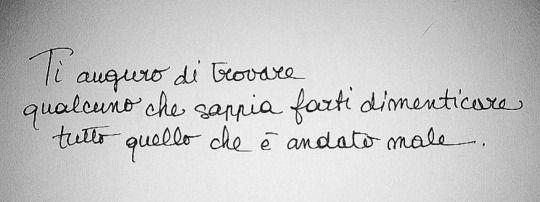 Ti auguro di trovare
qualcuno che sappia farti dimenticare
tutto quello che è andato male.